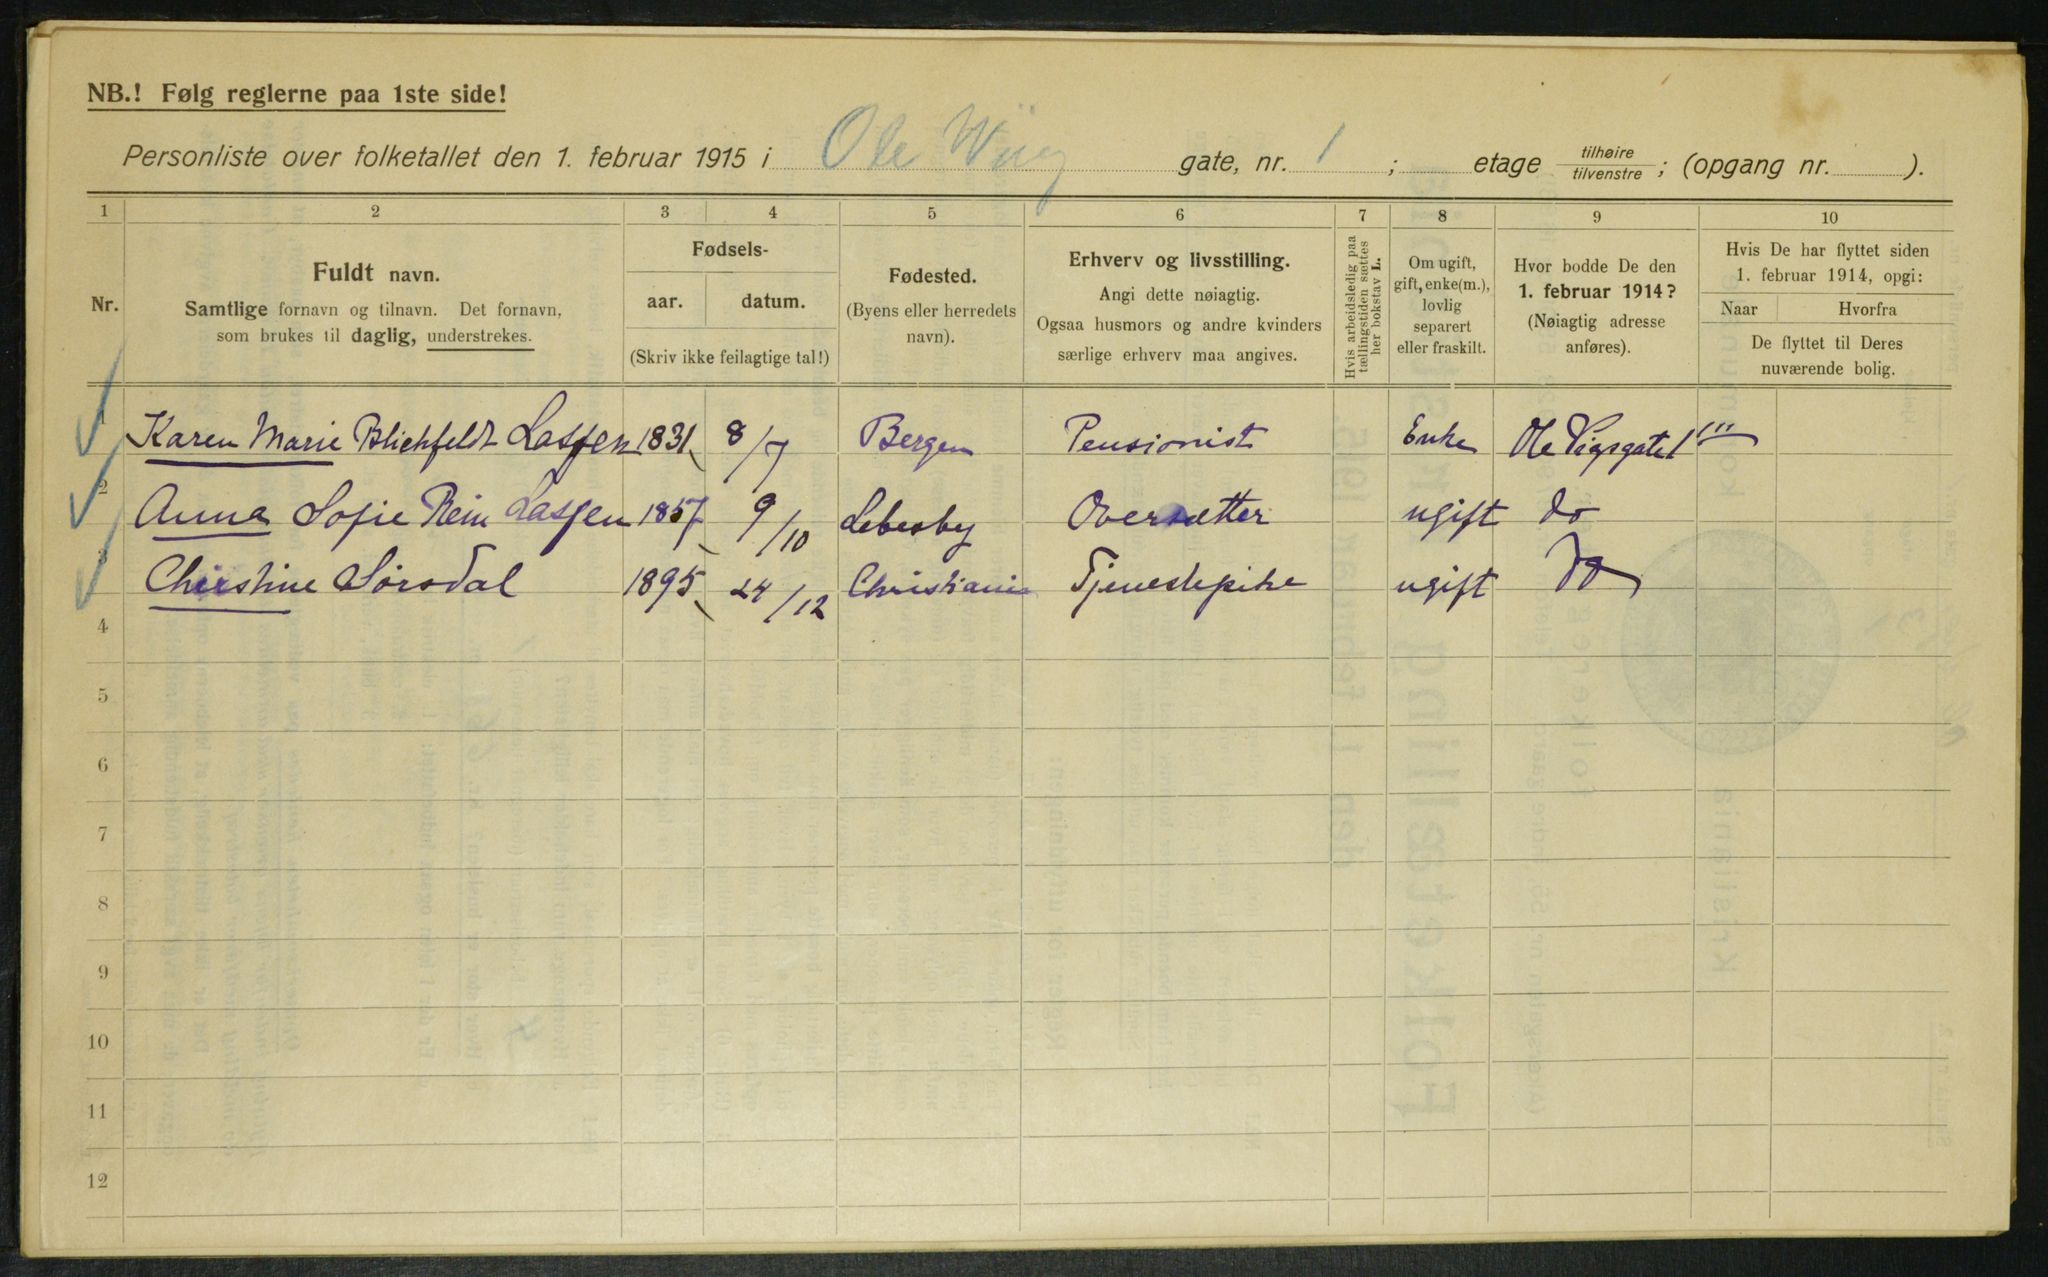 NB.! Følg reglerne paa 1ste side!
Personliste over folketallet den 1. februar 1915 i Ole Wiig gate, nr. 1 ; etage tilhøire tilvenstre ; (opgang nr. ).
1 2 3 4 5 6 7 8 9 10
Nr.
Fuldt navn.
Samtlige fornavn og tilnavn. Det fornavn,
som brukes til daglig, understrekes.
Fødsels-
aar. datum.
(Skriv ikke feilagtige tal!)
Fødested.
(Byens eller herredets
navn).
Erhverv og livsstilling.
Angi dette nøiagtig.
Ogsaa husmors og andre kvinders
særlige erhverv maa angives.
Hvis arbeidsledig paa
tællingstiden sættes
her bokstav L.
Om ugift,
gift, enke(m.),
lovlig
separert
eller fraskilt.
Hvor bodde De den
1. februar 1914?
(Nøiagtig adresse
anføres).
Hvis De har flyttet siden
1. februar 1914, opgi:
Naar Hvorfra
De flyttet til Deres
nuværende bolig.
1 Karen Marie Blichfeldt Lassen 1831 8/7 Bergen Pensionist Enke Ole Vigsgate 1 III
2 Anna Sofie Rein Lassen 1857 9/10 Lebesby Oversætter ugift do
3 Christine Sørsdal 1895 24/12 Christiania Tjenestepike ugift do
4
5
6
7
8
9
10
11
12